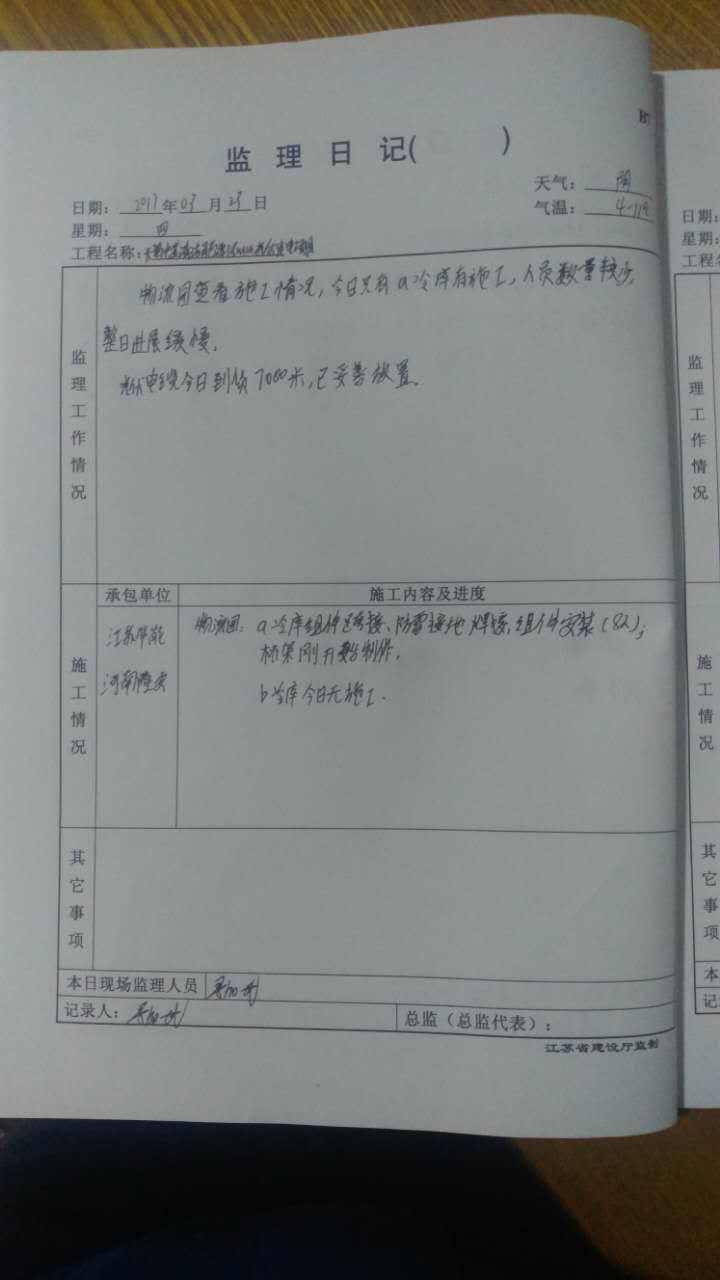 监 理 日 记( )
日期: 2017年03月23日
天气: 阴
星期: 四
气温: 4-11℃
工程名称:
物流园查看施工情况,今日只有a冷库有施工,人员数量较少,
整日进展缓慢。
光伏电缆今日到货7000米,已妥善放置。
监理工作情况
承包单位
施工内容及进度
江苏华能
河南隆安
物流园: a冷库组件连接、防雷接地焊接,组件安装(8人);
桥架刚开始制作。
b冷库今日无施工.
施工情况
其它事项
本日现场监理人员
记录人:
总监(总监代表):
江苏省建设厅监制
日期:
星期:
工程名
监理工作情况
施工情况
其它事项
本
记